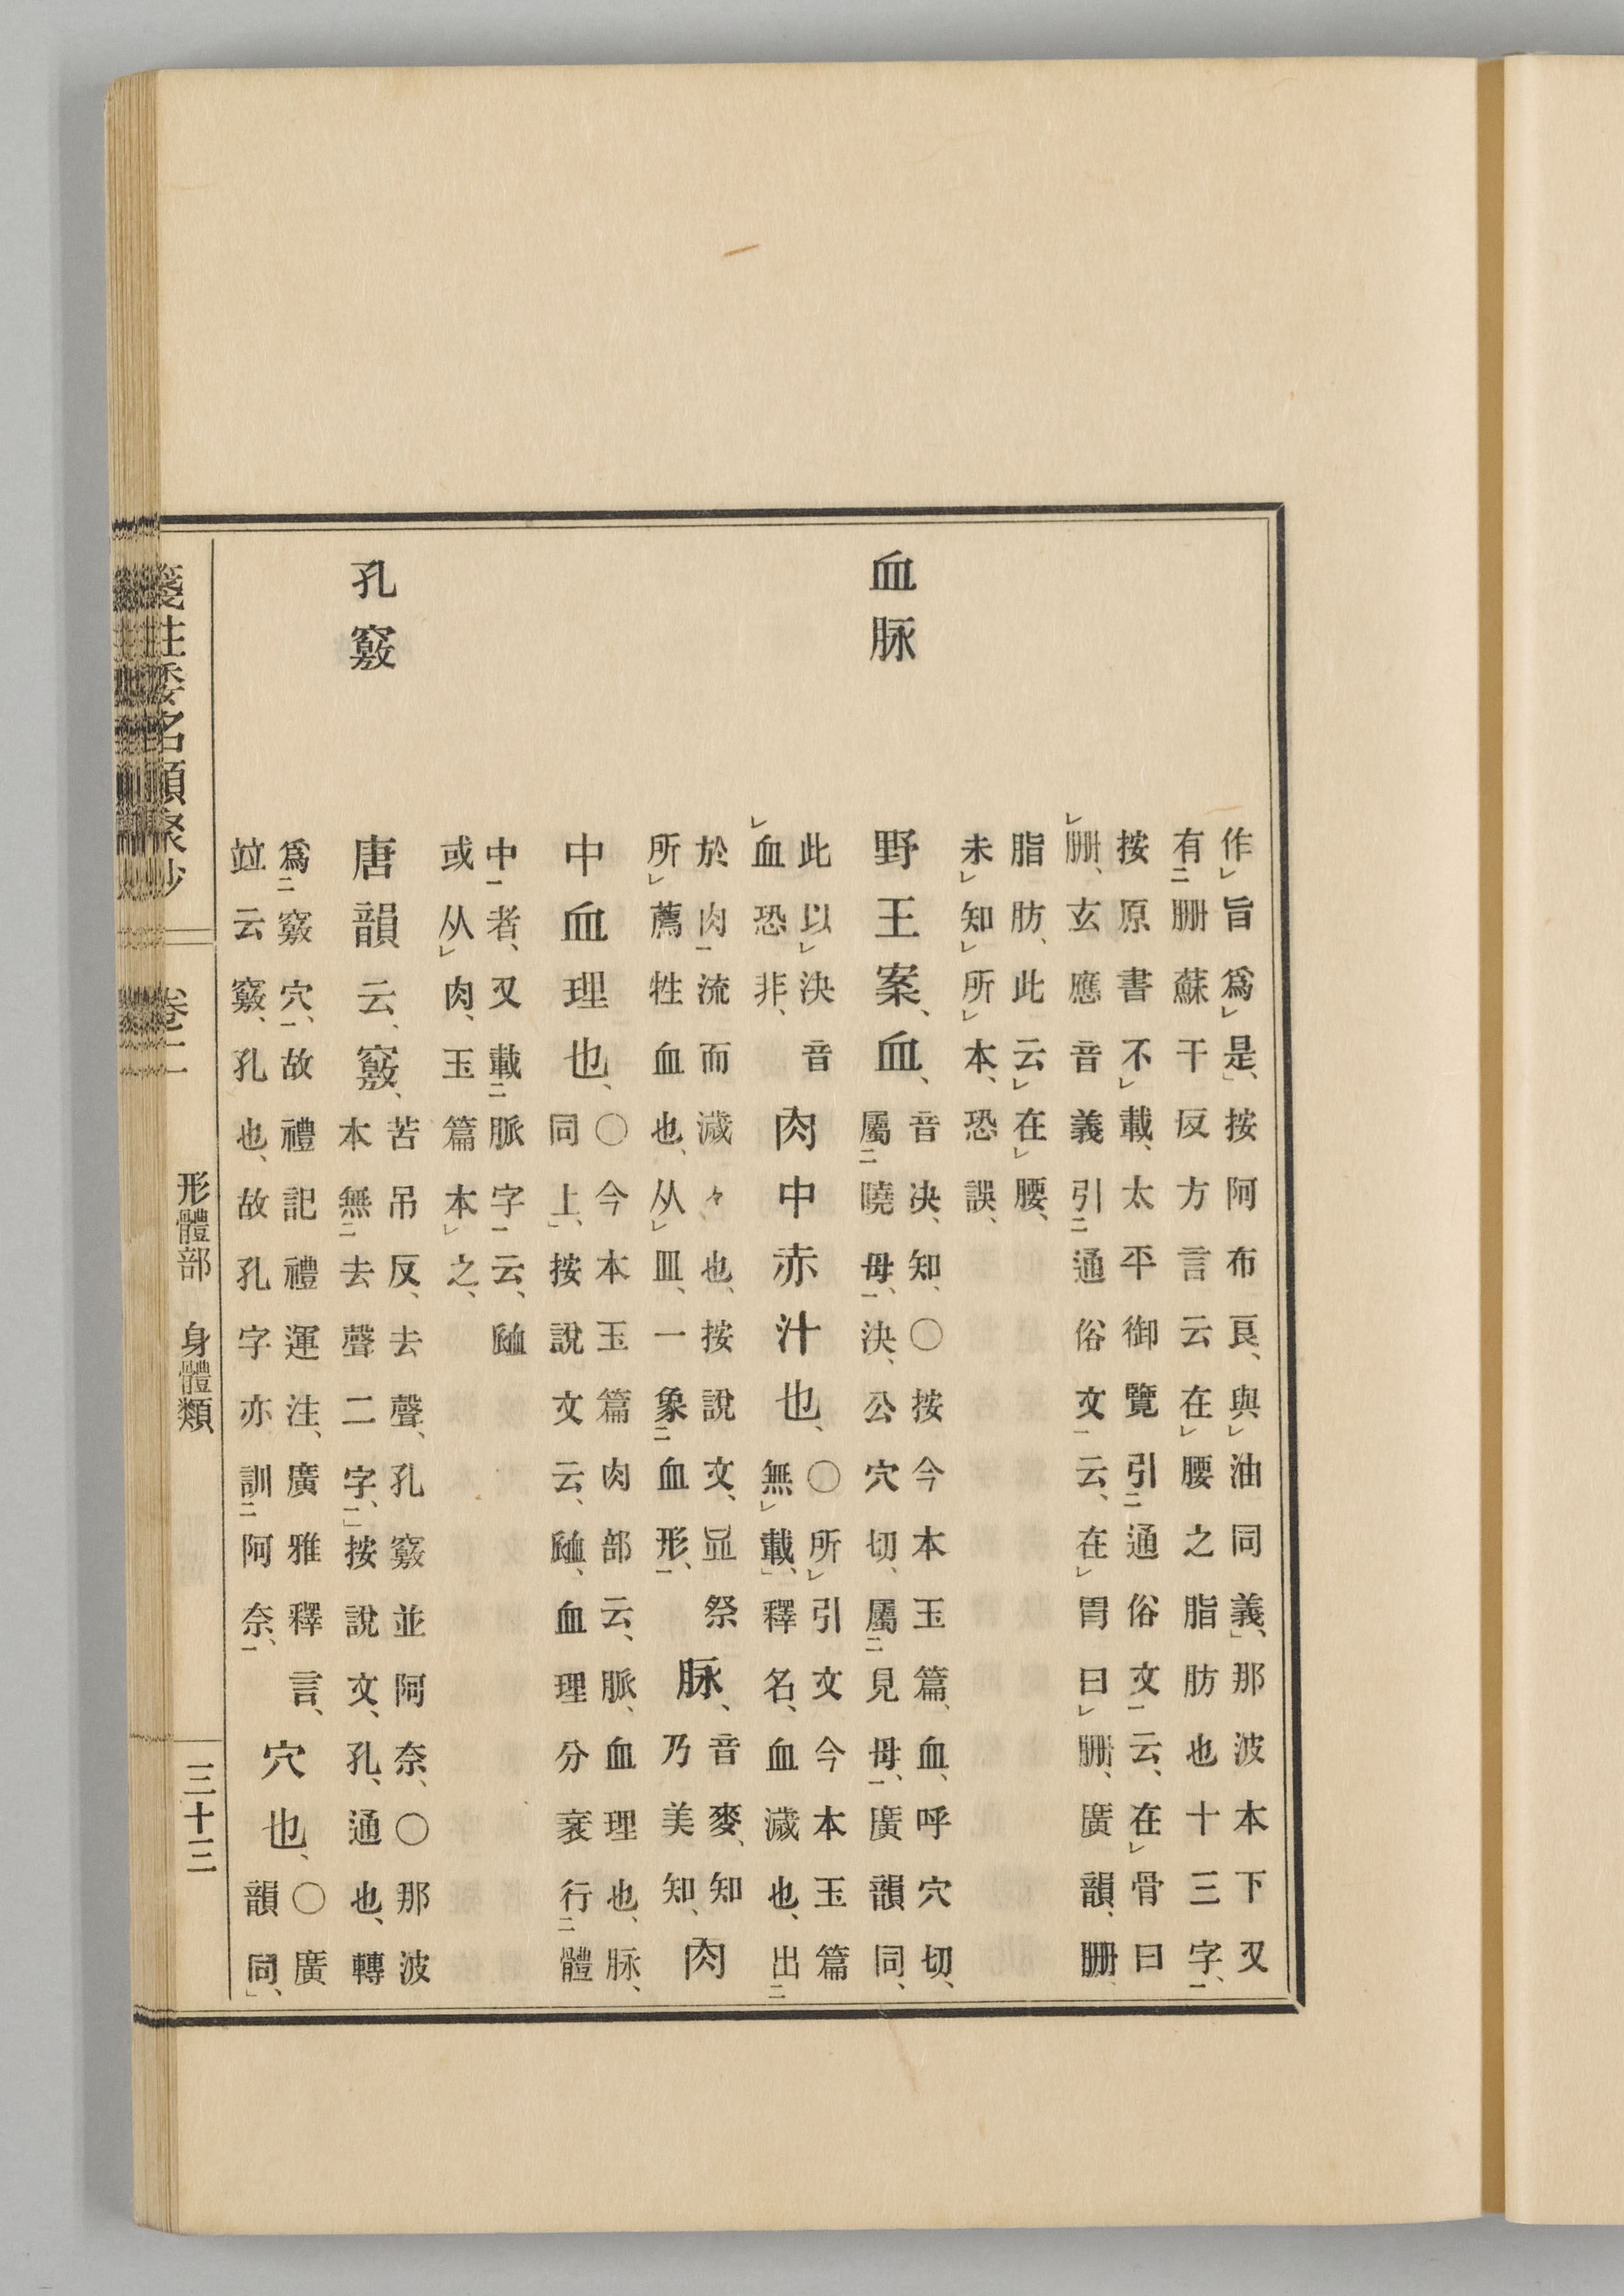 作旨爲是、按阿布良、與油同義、那波本下又
有蘇干反方言云在腰之脂肪也十三字、
按原書不載、太平御覽引通俗文云、在骨曰
玄應音義引通俗文云、在胃曰、廣韻、
脂肪、此云在腰、
未知所本、恐誤、
血脉
野王案、血、
音决、知、〇按今本玉篇、血、呼穴切、
屬曉母、決、公穴切、屬見母、廣韻同、
此以決音
血恐非、
肉中赤汁也、
〇所引文今本玉篇
無載、釋名、血濊也、出
於肉流而濊々也、按說文、祭
所薦牲血也、从皿、一象血形、
脉、
音麥、知
乃美知、
肉
中血理也、
〇今本玉篇肉部云、脈、血理也、脉、
同上、按說文云、𧖴、血理分衺行體
中者、又載脈字云、𧖴
或从肉、玉篇本之、
孔竅
唐韻云、竅、
苦吊反、去聲、孔竅並阿奈、〇那波
本無去聲二字、按說文、孔、通也、轉
爲竅穴、故禮記禮運注、廣雅釋言、
竝云竅、孔也、故孔字亦訓阿奈、
穴也、
〇廣
韻同、
箋注倭名類聚抄 卷二 形體部 身體類 三十三